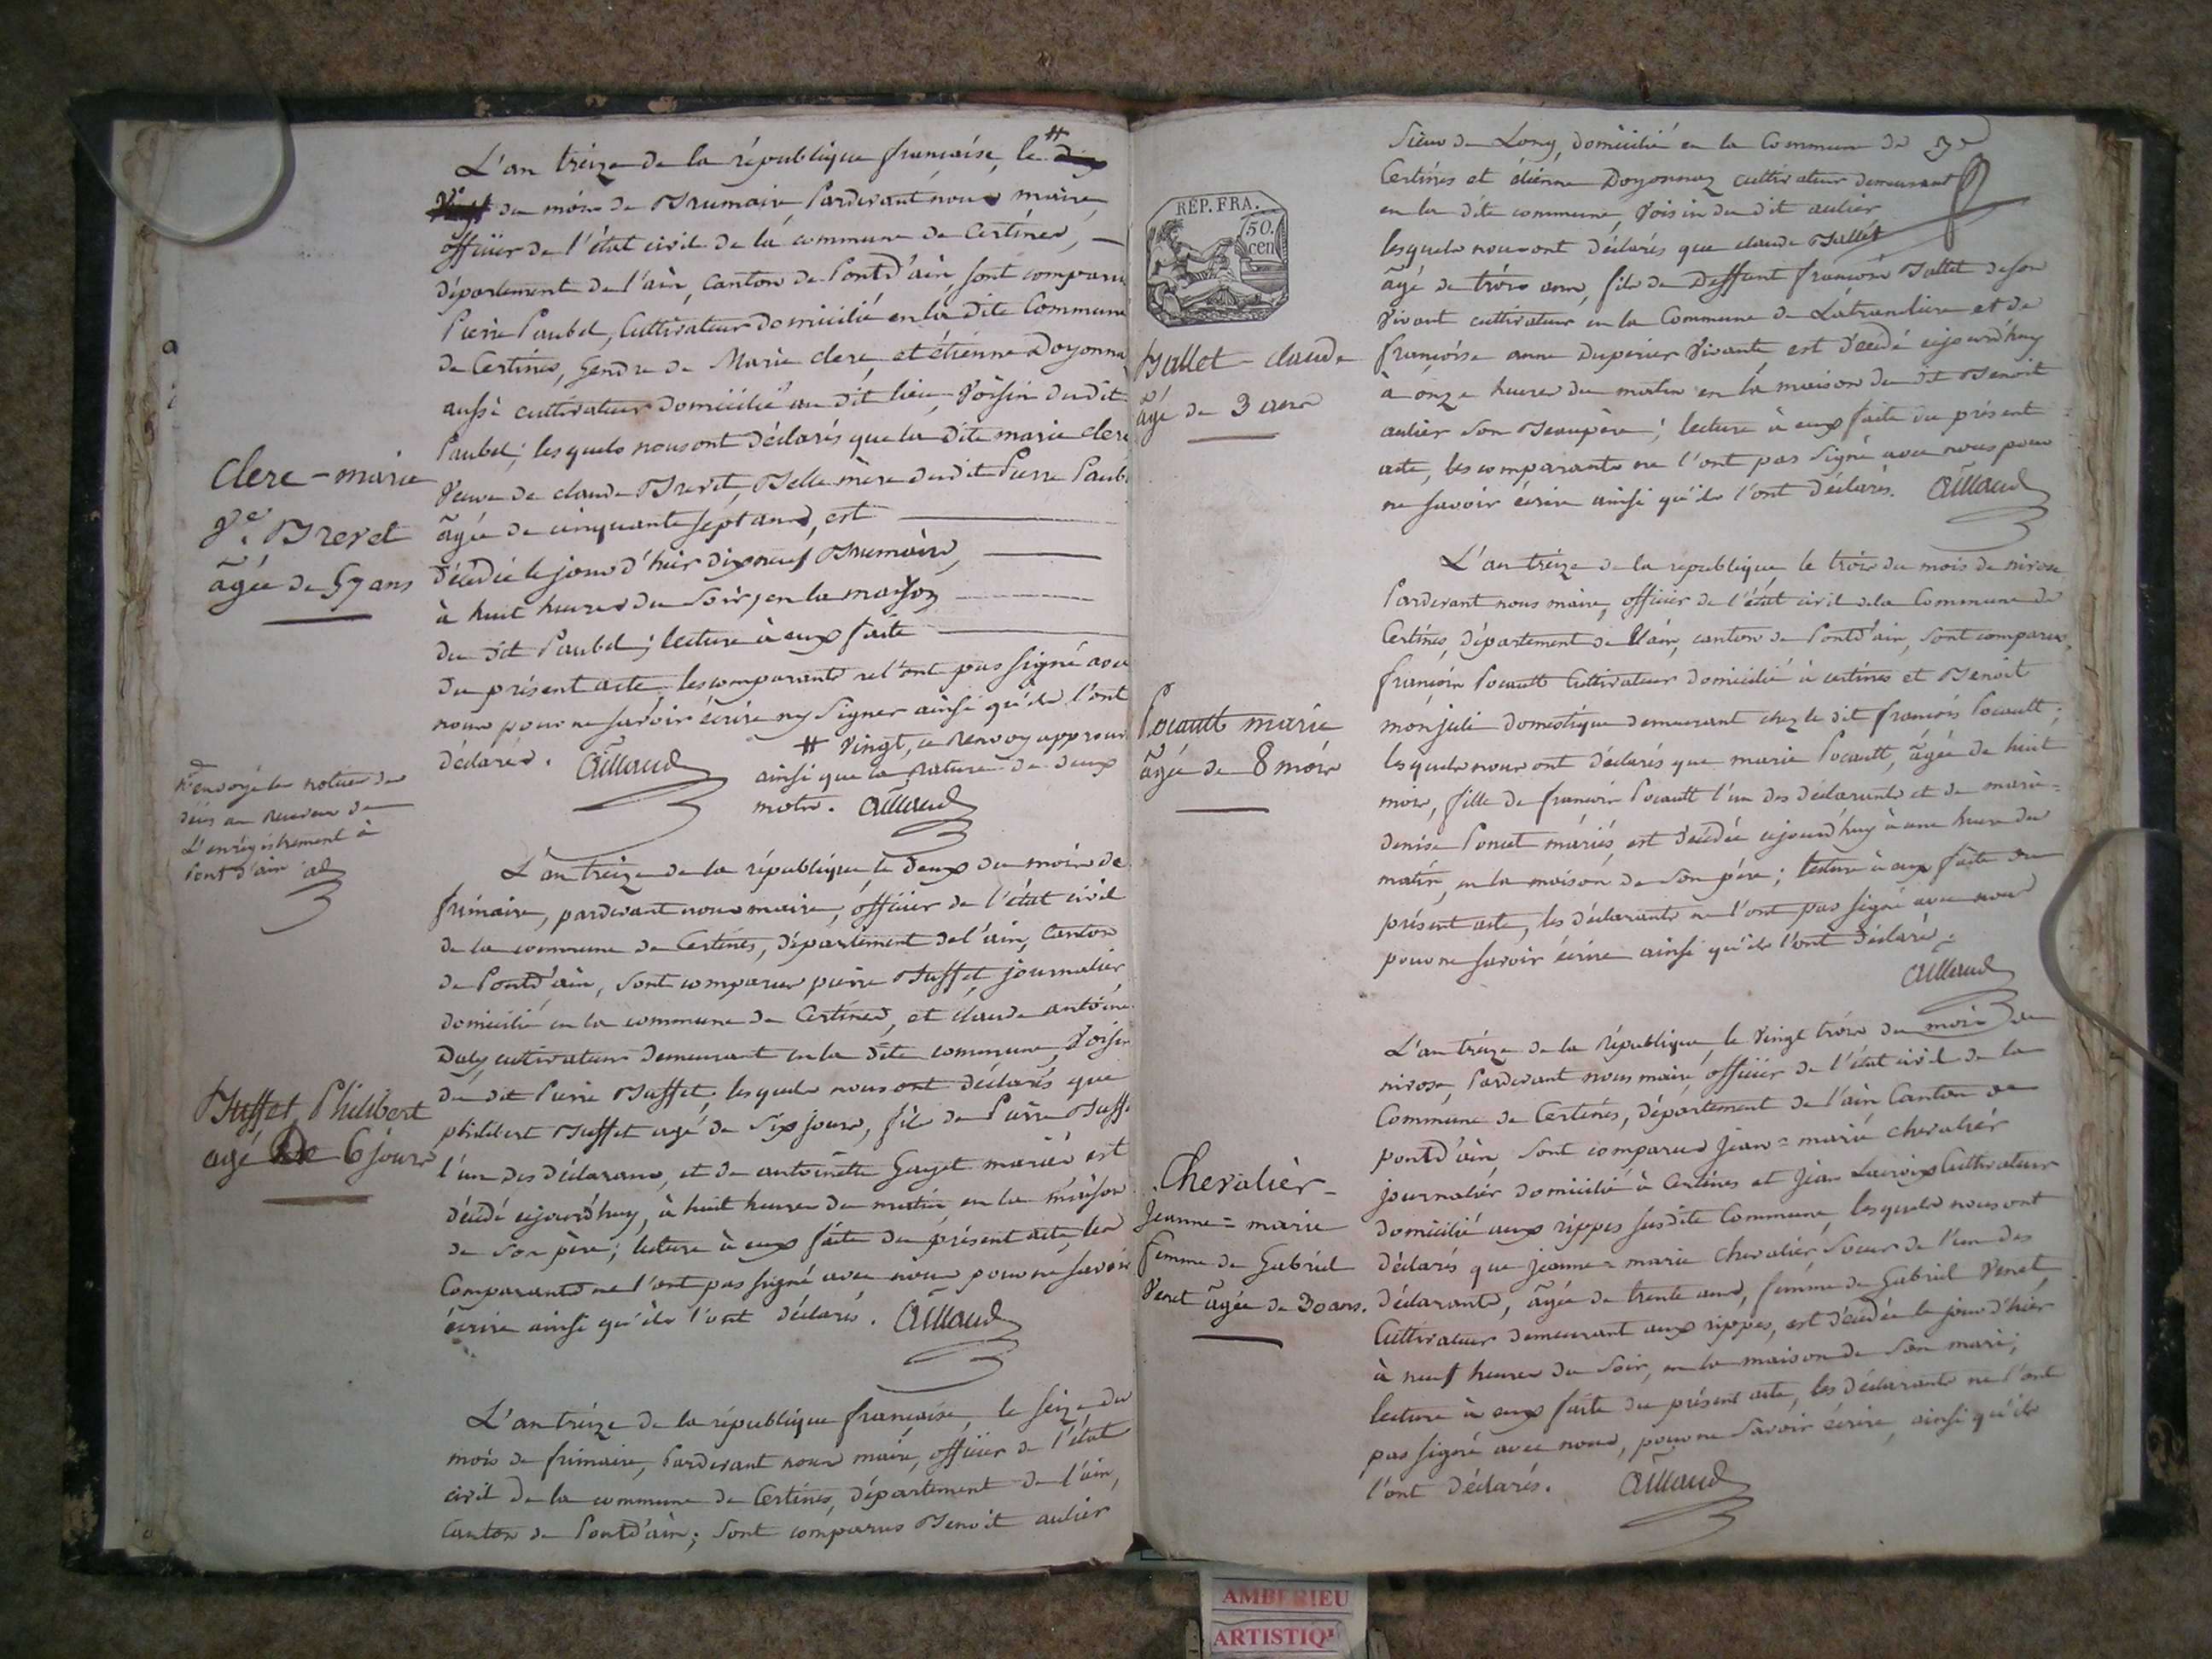 L'an treize de la république française, le # dix
Vingt du mois de Brumaire Pardevant nous maire,
officier de l'état civil de la commune de Certines,
département de l'ain, canton de Pont d'ain, sont comparu
Pierre Paubel, Cultivateur domicilié en la dite Commune
de Certines, Gendre de Marie clerc, et étienne Doyonna
aussi cultivateur domicilié au dit lieu, Voisin du dit
Paubel; lesquels nous ont déclarés que la dite marie clerc
Veuve de claude Brevet, Belle mère du dit Pierre Paub
âgée de cinquante sept ans, est
décédée le jour d'hier dix neuf Brumaire,
à huit heures du soir, en la maison
du dit Paubel; lecture à eux faite
du présent acte, les comparants ne l'ont pas signé avec
nous pour ne savoir écrire ny signer ainsi qu'ils l'ont
déclarés. Aillaud
# Vingt, ce Renvoy approuv
ainsi que la Rature de deux
mots. Aillaud
Clerc - marie
Ve. Brevet
âgée de 57 ans
envoyé les notices de
décès au Receveur de
L'enrégistrement à
Pont d'ain
L'an treize de la république le deux du mois de
frimaire, pardevant nous maire, officier de l'état civil
de la commune de Certines, département de l'ain, Canton
de Pont d'ain, sont comparus pierre Buffet, journalier
domicilié en la commune de Certines, et claude antoine
Daly cultivateur demeurant en la dite commune, Voisin
du dit Pierre Buffet; lesquels nous ont déclarés que
philibert Buffet agé de six jours, fils de Pierre Buffe
l'un des déclarans, et de antoinette Gayet mariés est
décédé cejourd'huy, à huit heures du matin, en la maison
de son père; lecture à eux faite du présent acte, les
Comparants ne l'ont pas signé avec nous pour ne savoir
écrire ainsi qu'ils l'ont déclarés. Aillaud
Buffet, Philibert
agé De 6 jours
L'an treize de la république française, le seize du
mois de frimaire, Pardevant nous maire, officier de l'état
civil de la commune de Certines, département de l'ain,
Canton de Pont d'ain; sont comparus Benoit aulier
REP. FRA.
50.
cen
Sieur de Long, domicilié en la Commune de
Certines et étienne Doyonnaz cultivateur demeurant
en la dite commune, Voisin du dit aulier
lesquels nous ont déclarés que claude Ballet
âgé de trois ans, fils de Deffunt françois Ballet de son
Vivant cultivateur en la Commune de Latranclière et de
françoise anne Duperier Vivante, est décédé cejourd'huy
à onze heures du matin en la maison du dit Benoit
aulier son Beaupère; lecture à eux faite du présent
acte, les comparants ne l'ont pas signé avec nous pour
ne savoir écrire ainsi qu'ils l'ont déclarés. Aillaud
Ballet - claude
âgé de 3 ans
L'an treize de la république le trois du mois de nivose
Pardevant nous maire, officier de l'état civil de la Commune de
Certines, département de l'ain, canton de Pont d'ain, sont comparus
françois Pocault Cultivateur domicilié à certines et Benoit
monjuli domestique demeurant chez le dit françois Pocault;
lesquels nous ont déclarés que marie Pocault, âgée de huit
mois, fille de françois Pocault l'un des déclarants et de marie=
denise Poncet mariés, est décédée cejourd'huy à une heure du
matin, en la maison de son père; lecture à eux faite du
présent acte, les déclarants ne l'ont pas signé avec nous
pour ne savoir écrire ainsi qu'ils l'ont déclaré.
Aillaud
Pocault marie
âgée de 8 mois
L'an treize de la République, le Vingt trois du mois de
nivose, Pardevant nous maire, officier de l'état civil de la
Commune de Certines, département de l'ain Canton de
pont d'ain, sont comparus Jean=marie chevalier
journalier domicilié à Certines et Jean Lacroix Cultivateur
domicilié aux rippes susdite Commune, lesquels nous ont
déclarés que jeanne=marie Chevalier soeur de l'un des
déclarants, âgée de trente ans, femme de Gabriel Venet
Cultivateur demeurant aux rippes, est décédée le jour d'hier
à neuf heures du soir, en la maison de son mari;
lecture à eux faite du présent acte, les déclarants ne l'ont
pas signé avec nous, pour ne savoir écrire, ainsi qu'ils
l'ont déclarés. Aillaud
Chevalier-
Jeanne=marie
femme de Gabriel
Venet âgée de 30 ans.
AMBERIEU
ARTISTIQ